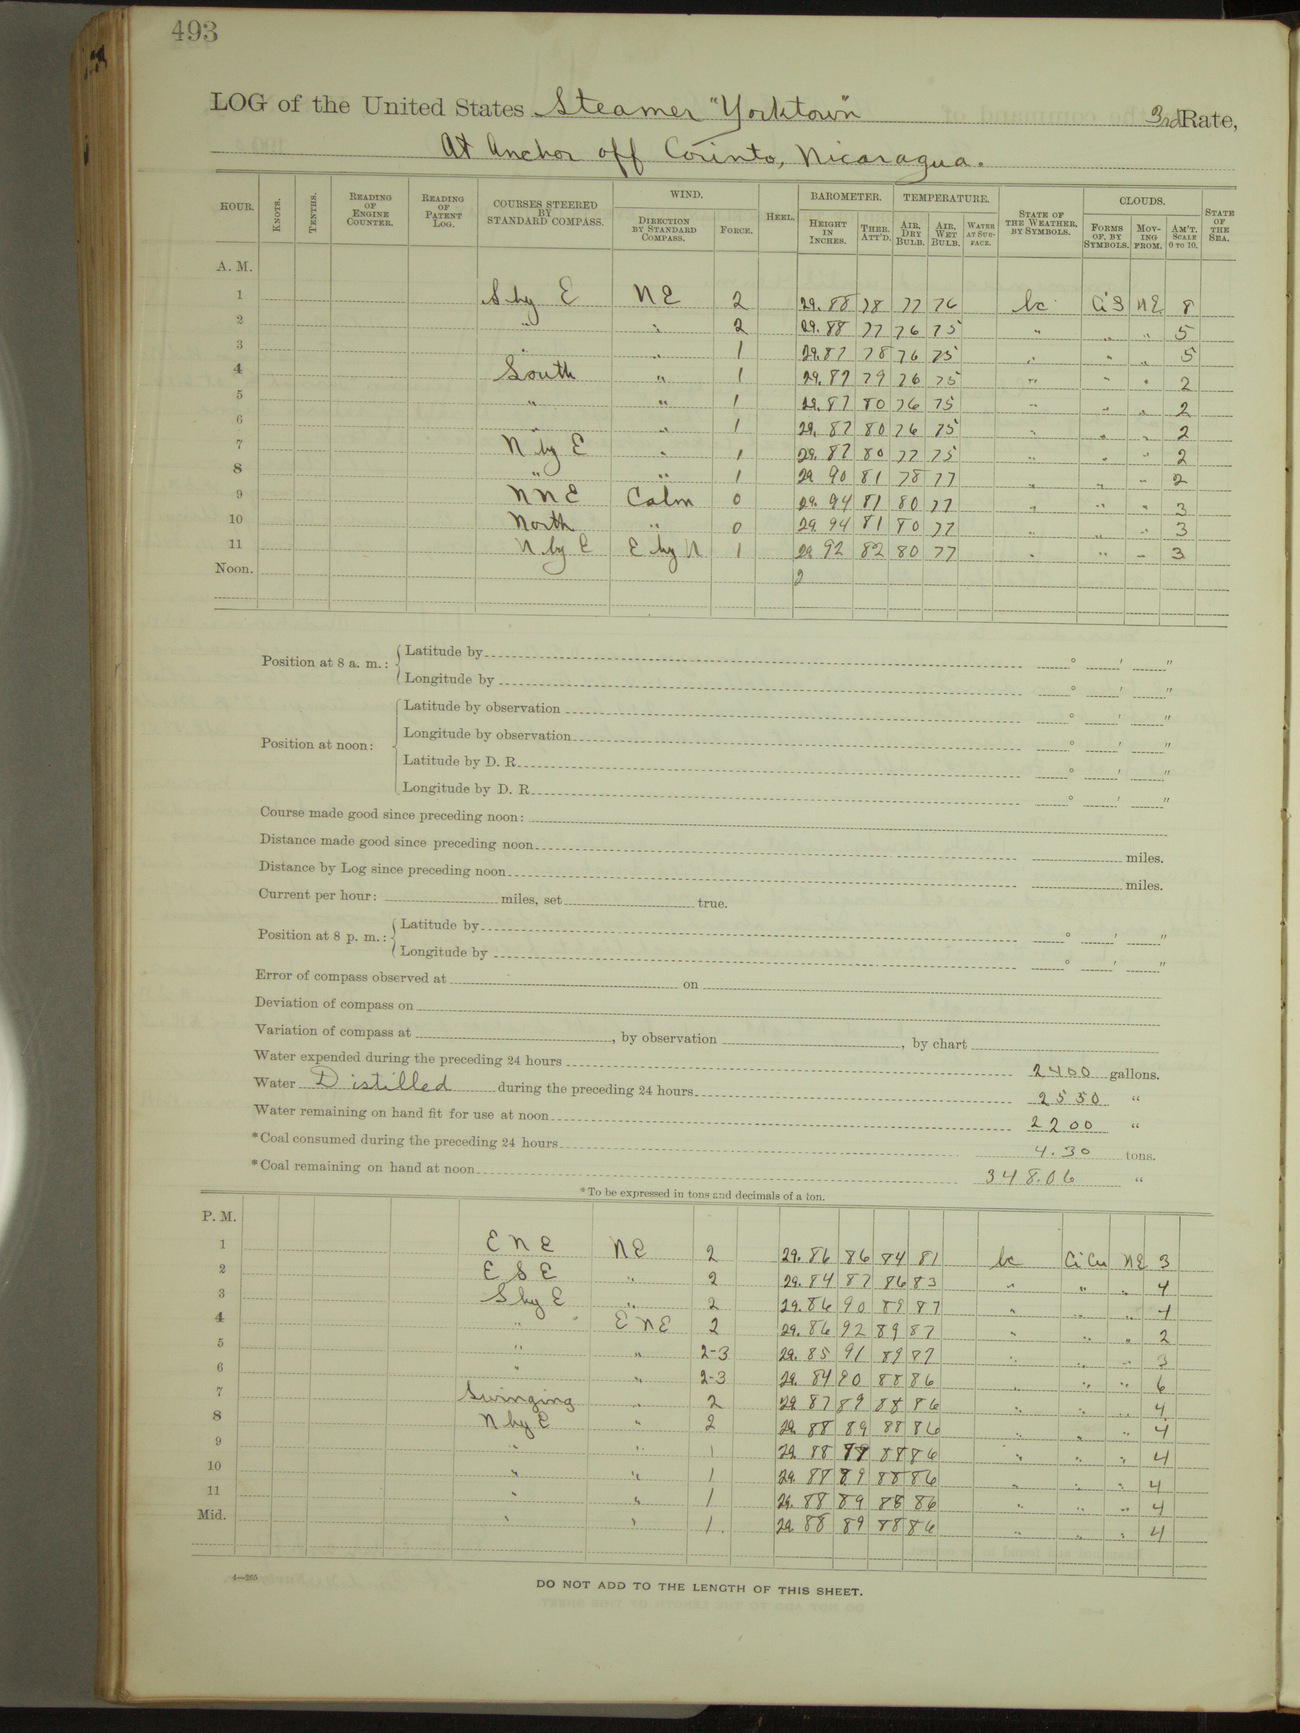 493
LOG of the United States Steamer "Yorktown" 3rd Rate,
At Anchor off Corinto, Nicaragua.
HOUR. KNOTS. TENTHS. READING OF ENGINE COUNTER. READING OF PATENT LOG. COURSES STEERED BY STANDARD COMPASS. WIND. DIRECTION BY STANDARD COMPASS. FORCE. HEEL. BAROMETER. HEIGHT IN INCHES. THER. ATT'D. TEMPERATURE. AIR, DRY BULB. AIR, WET BULB. WATER AT SURFACE. STATE OF THE WEATHER, BY SYMBOLS. CLOUDS. FORMS OF, BY SYMBOLS. MOVING FROM. AM'T. SCALE 0 TO 10. STATE OF THE SEA.
A. M.
1 S by E NE 2 29.88 78 77 76 bc CiS NE 8
2 " " 2 29.88 77 76 75 " " " 5
3 " " 1 29.87 78 76 75 " " " 5
4 South " 1 29.87 79 76 75 " " " 2
5 " " 1 29.87 80 76 75 " " " 2
6 " " 1 29.87 80 76 75 " " " 2
7 N by E " 1 29.87 80 77 75 " " " 2
8 " " 1 29 90 81 78 77 " " " 2
9 NNE Calm 0 29.94 81 80 77 " " " 3
10 North " 0 29.94 81 80 77 " " " 3
11 N by E E by N 1 29 92 82 80 77 " " " 3
Noon. 2
Position at 8 a. m.: Latitude by ° ' "
Longitude by ° ' "
Position at noon: Latitude by observation ° ' "
Longitude by observation ° ' "
Latitude by D. R. ° ' "
Longitude by D. R. ° ' "
Course made good since preceding noon:
Distance made good since preceding noon miles.
Distance by Log since preceding noon miles.
Current per hour: miles, set true.
Position at 8 p. m.: Latitude by ° ' "
Longitude by ° ' "
Error of compass observed at on
Deviation of compass on
Variation of compass at , by observation , by chart
Water expended during the preceding 24 hours 2400 gallons.
Water Distilled during the preceding 24 hours 2550 "
Water remaining on hand fit for use at noon 2200 "
*Coal consumed during the preceding 24 hours 4.30 tons.
*Coal remaining on hand at noon 348.06 "
*To be expressed in tons and decimals of a ton.
P. M.
1 ENE NE 2 29.86 86 84 81 bc CiCu NE 3
2 ESE " 2 29.84 87 86 83 " " " 4
3 S by E " 2 29.86 90 89 87 " " " 1
4 " ENE 2 29.86 92 89 87 " " " 2
5 " " 2-3 29.85 91 89 87 " " " 3
6 " " 2-3 29.84 90 88 86 " " " 6
7 Swinging " 2 29.87 89 88 86 " " " 4
8 N by E " 2 29.88 89 88 86 " " " 4
9 " " 1 29.88 89 88 86 " " " 4
10 " " 1 29.88 89 88 86 " " " 4
11 " " 1 29.88 89 88 86 " " " 4
Mid. " " 1 29.88 89 88 86 " " " 4
4—265
DO NOT ADD TO THE LENGTH OF THIS SHEET.